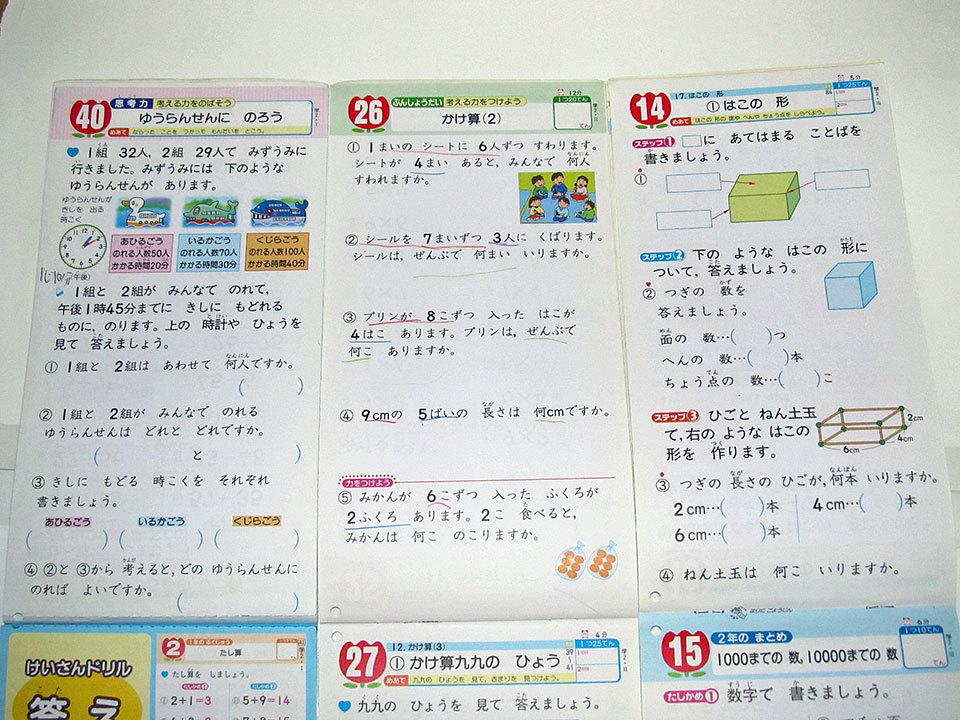 40
思考力 考える力をのばそう
ゆうらんせんに のろう
めあて ならった ことを つかって もんだいを とこう。
1組 32人，2組 29人で みずうみに
行きました。みずうみには 下のような
ゆうらんせんが あります。
ゆうらんせんが
きしを 出る
時こく
(午後)
あひるごう
のれる人数50人
かかる時間20分
いるかごう
のれる人数70人
かかる時間30分
くじらごう
のれる人数100人
かかる時間40分
1組と 2組が みんなで のれて，
午後1時45分までに きしに もどれる
ものに，のります。上の 時計や ひょうを
見て 答えましょう。
① 1組と 2組は あわせて 何人ですか。
( )
② 1組と 2組が みんなで のれる
ゆうらんせんは どれと どれですか。
( と )
③ きしに もどる 時こくを それぞれ
書きましょう。
あひるごう いるかごう くじらごう
( ) ( ) ( )
④ ②と ③から 考えると，どの ゆうらんせんに
のれば よいですか。
( )
26
ぶんしょうだい 考える力をつけよう
12分
1つ20てん
かけ算(2)
てん
① 1まいの シートに 6人ずつ すわります。
シートが 4まい あると，みんなで 何人
すわれますか。
② シールを 7まいずつ 3人に くばります。
シールは，ぜんぶで 何まい いりますか。
③ プリンが 8こずつ 入った はこが
4はこ あります。プリンは，ぜんぶで
何こ ありますか。
④ 9cmの 5ばいの 長さは 何cmですか。
力をつけよう
⑤ みかんが 6こずつ 入った ふくろが
2ふくろ あります。2こ 食べると，
みかんは 何こ のこりますか。
14
17. はこの 形
84
5分
1つ25てん
① はこの 形
めあて はこの 形の 面や へんや ちょう点を しらべよう。
ステップ1 □に あてはまる ことばを
書きましょう。
①
ステップ2 下の ような はこの 形に
ついて，答えましょう。
② つぎの 数を
答えましょう。
面の 数…( )つ
へんの 数…( )本
ちょう点の 数…( )こ
ステップ3 ひごと ねん土玉
で，右の ような はこの
形を 作ります。
2cm
4cm
6cm
③ つぎの 長さの ひごが，何本 いりますか。
2cm…( )本 4cm…( )本
6cm…( )本
④ ねん土玉は 何こ いりますか。
けいさんドリル
答え
2
1年の ふくしゅう
たし算
たし算を しましょう。
たしかめ1 たしかめ2
① 2+1=3 ⑤ 5+9=14
27
12. かけ算(3)
39
〜
41
4分
1つ25てん
① かけ算九九の ひょう
めあて 九九の ひょうを 見て，きまりを 見つけよう。
九九の ひょうを 見て 答えましょう。
15
2年の まとめ
6分
1つ10てん
1000までの 数，10000までの 数
たしかめ1 数字で 書きましょう。